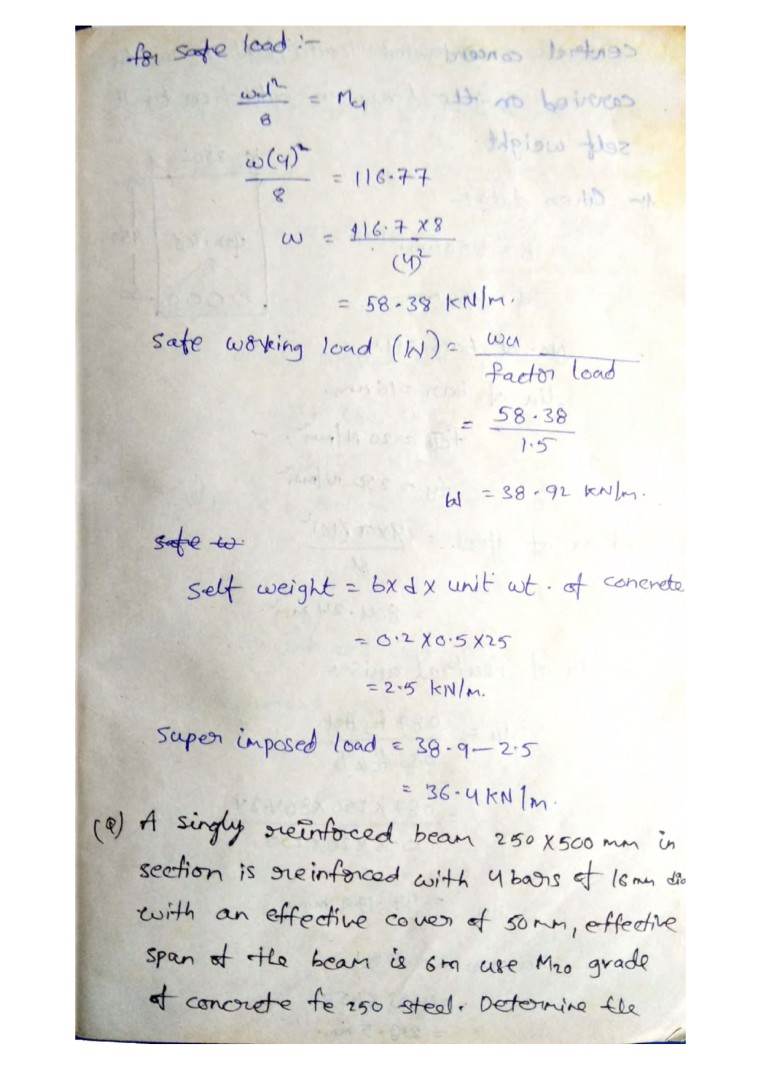 for safe load :-
wul²/8 = Mu
w(4)²/8 = 116.77
w = 116.7 x 8/(4)²
= 58.38 KN/m.
Safe working load (W) = wu/factor load
= 58.38/1.5
W = 38.92 KN/m.
safe w
Self weight = b x d x unit wt. of concrete
= 0.2 x 0.5 x 25
= 2.5 kN/m.
Super imposed load = 38.9 - 2.5
= 36.4 KN/m.
(Q) A singly reinforced beam 250 x 500 mm in
section is reinforced with 4 bars of 16 mm dia
with an effective cover of 50 mm, effective
span of the beam is 6m use M20 grade
of concrete fe 250 steel. Determine the